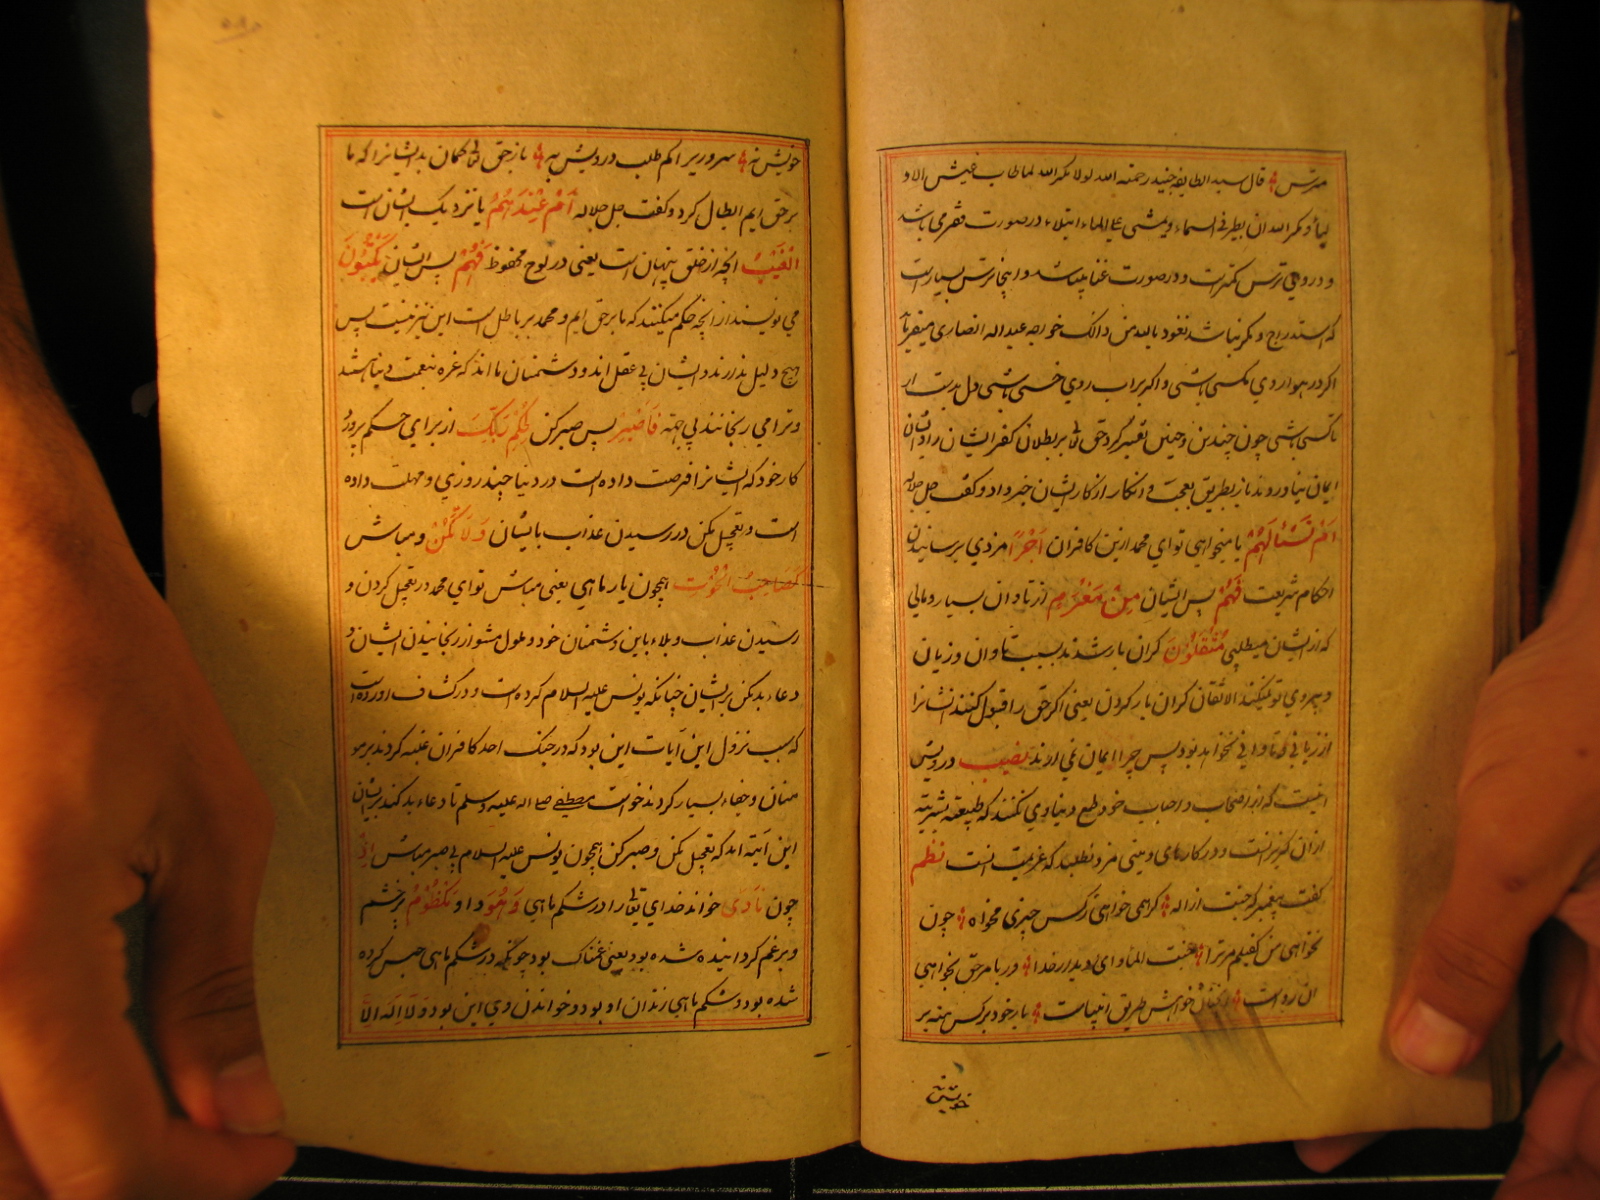 مترس قال سید الطایفه جنید رحمته الله لولا مکر الله لما طاب عیش الاو
لیاء و مکر الله ان یطیر فی السماء و یمشی علی الماء ابتلاء در صورت فقر می باشد
و درویی ترس کمترست و در صورت غنا میباشد و اینجا ترس بسیارست
که استدراج و مکر نباشد نعوذ بالله من ذالک خواجه عبد اله انصاری میفرماید
اکر در هوا روی مکسی باشی و اکر بر اب روی خسی باشی دل بدست ار
تا کسی باشی چون چندین و چنین تعبیر کرد حق تعالی بر بطلان کفر ایشان و ایشان
ایمان نیاوردند باز بطریق تعجب و انکار از کار ایشان خبر داد و کفت جل جلاله
اَمْ تَسْئَالَهُمْ یا میخواهی تو ای محمد ازین کافران اَجْرًا مزدی برسانیدن
احکام شریعت فَهُمْ پس ایشان مِنْ مَغْرَمٍ از تاوان بسیار و مالی
که از ایشان میطلبی مُثْقَلُونَ کران بار شدند بسبب تاوان و زیان
و پیروی تو نمیکنند الاثقال کران بار کردن یعنی اکر حق را قبول کنند ایشانرا
از زیانی و تاوانی نخواهد بود پس چرا ایمان نمی ارند نصیب درویش
اینست که از اصحاب و احباب خود طمع دنیاوی نکنند که طبیعته بشریته
از ان کریزانست و در کارهای دینی مزد نطلبد که عزیمت انست نظم
کفت پیغمبر که جنت از اله کر همی خواهی ز کس چیزی مخواه چون
نخواهی من کفیلم مر ترا جنت الماوای و دیدار خدا ور بامر حق بخواهی
ان رواست انچنان خواهش طریق انبیاست بار خود بر کس منه بر
خویش
خویش نه سروریرا کم طلب درویش به باز حق تعالی کمان بد ایشانرا که ما
بر حق ایم ابطال کرد و کفت جل جلاله اَمْ عِنْدَهُمْ یا نزدیک ایشان است
الْغَیْبُ انچه از خلق پنهان است یعنی در لوح محفوظ فَهُمْ پس ایشان یَکْتُبُونَ
می نویسند از انچه حکم میکنند که ما بر حق ایم و محمد بر باطل است این نیز نیست پس
هیچ دلیل ندارند و ایشان بی عقل اند و دشمنان ما اند که غره بنعمت دنیا شدند
و ترا می رنجانند بی جهته فَاصْبِرْ پس صبر کن لِحُکْمِ رَبِّکَ از برای حکم پرورد
کار خود که ایشانرا فرصت داده است در دنیا چند روزی و مهلت داده
است و تعجیل مکن در رسیدن عذاب بایشان وَلَا تَکُنْ و مباش
کَصَاحِبِ الْحُوْتِ همچون یار ماهی یعنی مباش تو ای محمد در تعجیل کردن و
رسیدن عذاب و بلاء باین دشمنان خود و ملول مشو از رنجانیدن ایشان و
دعاء بد مکن بر ایشان چنانکه یونس علیه السلام کرده است و در کشاف اورده است
که سبب نزول این آیات این بود که در جنک احد کافران غلبه کردند بر مو
منان و جفاء بسیار کردند خواست مصطفی صلی اله علیه وسلم تا دعاء بد کند بر ایشان
این آیته امد که تعجیل مکن و صبر کن همچون یونس علیه السلام بی صبر مباش اِذْ
چون نَادَی خواند خدای تعالی را در شکم ماهی وَهُوَ و او مَکْظُوْمٌ پر خشم
و پر غم کردانیده شده بود یعنی غمناک بود چونکه در شکم ماهی حبس کرده
شده بود و شکم ماهی زندان او بود و خواندن وی این بود و لَا اِلهَ الَّا